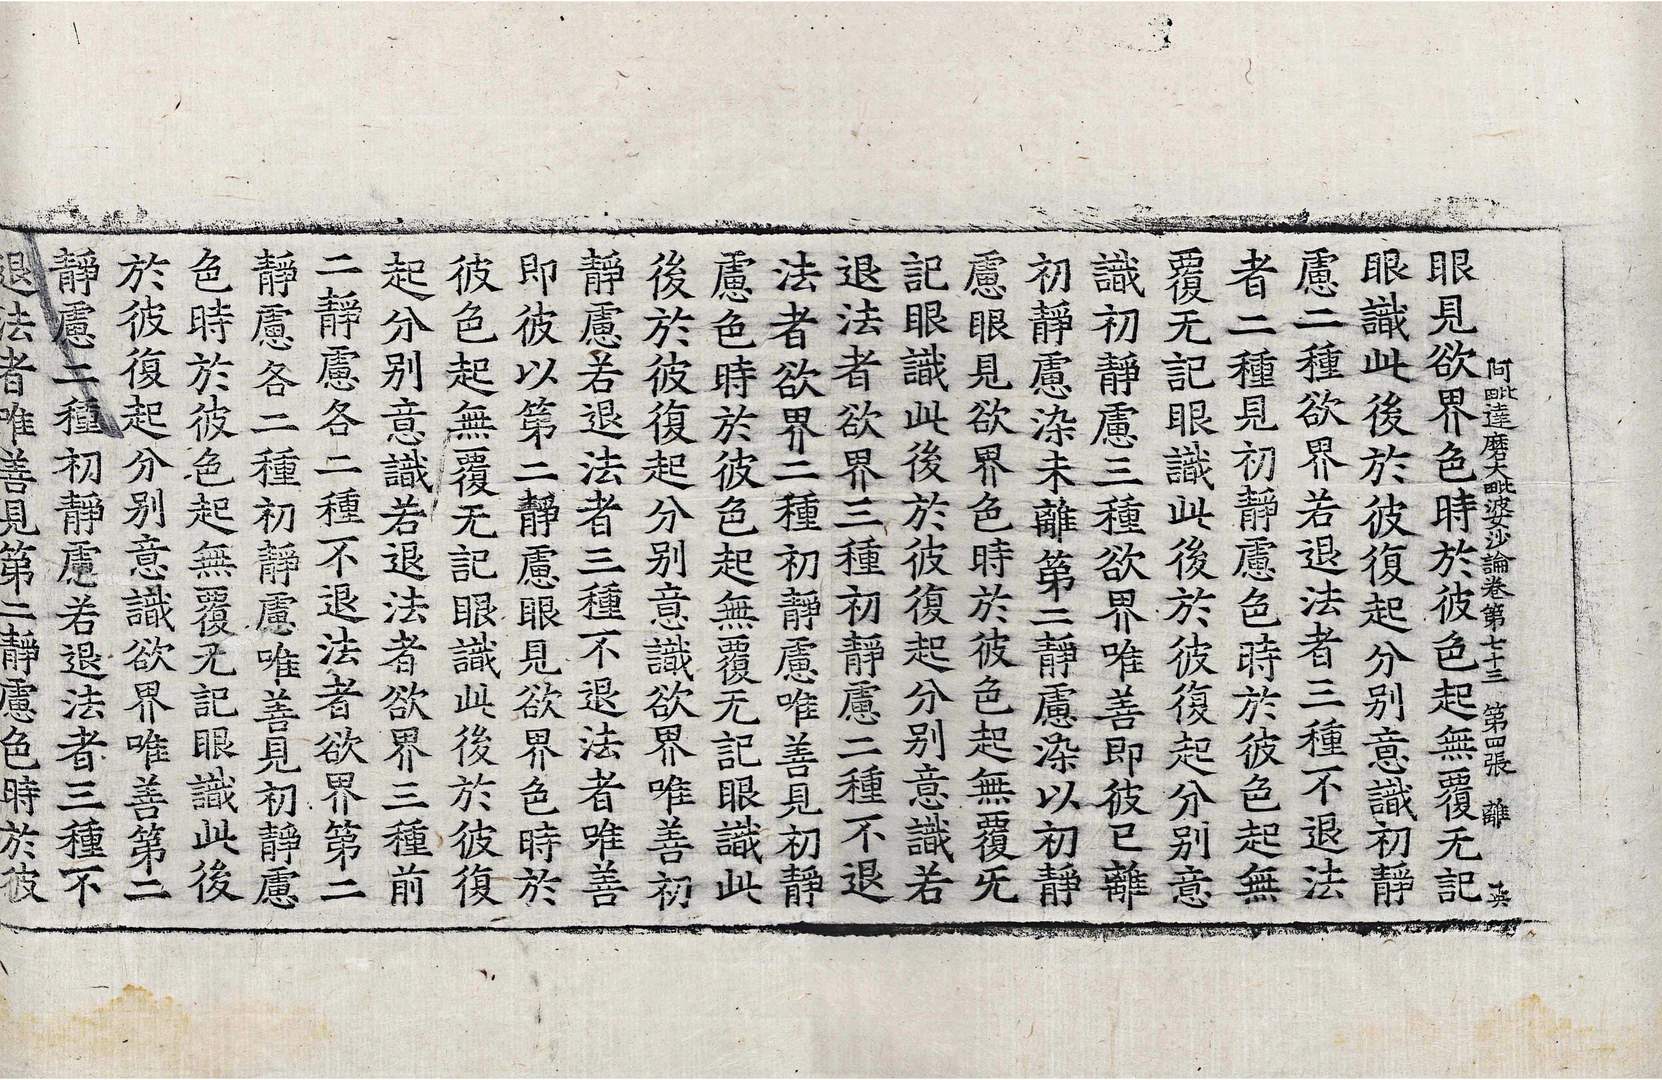 阿毗達磨大毗婆沙論卷第七十三 第四張 離 英
眼見欲界色時於彼色起無覆无記
眼識此後於彼復起分別意識初靜
慮二種欲界若退法者三種不退法
者二種見初靜慮色時於彼色起無
覆无記眼識此後於彼復起分別意
識初靜慮三種欲界唯善即彼已離
初靜慮染未離第二靜慮染以初靜
慮眼見欲界色時於彼色起無覆无
記眼識此後於彼復起分別意識若
退法者欲界三種初靜慮二種不退
法者欲界二種初靜慮唯善見初靜
慮色時於彼色起無覆无記眼識此
後於彼復起分別意識欲界唯善初
靜慮若退法者三種不退法者唯善
即彼以第二靜慮眼見欲界色時於
彼色起無覆无記眼識此後於彼復
起分別意識若退法者欲界三種前
二靜慮各二種不退法者欲界第二
靜慮各二種初靜慮唯善見初靜慮
色時於彼色起無覆无記眼識此後
於彼復起分別意識欲界唯善第二
靜慮二種初靜慮若退法者三種不
退法者唯善見第二靜慮色時於彼